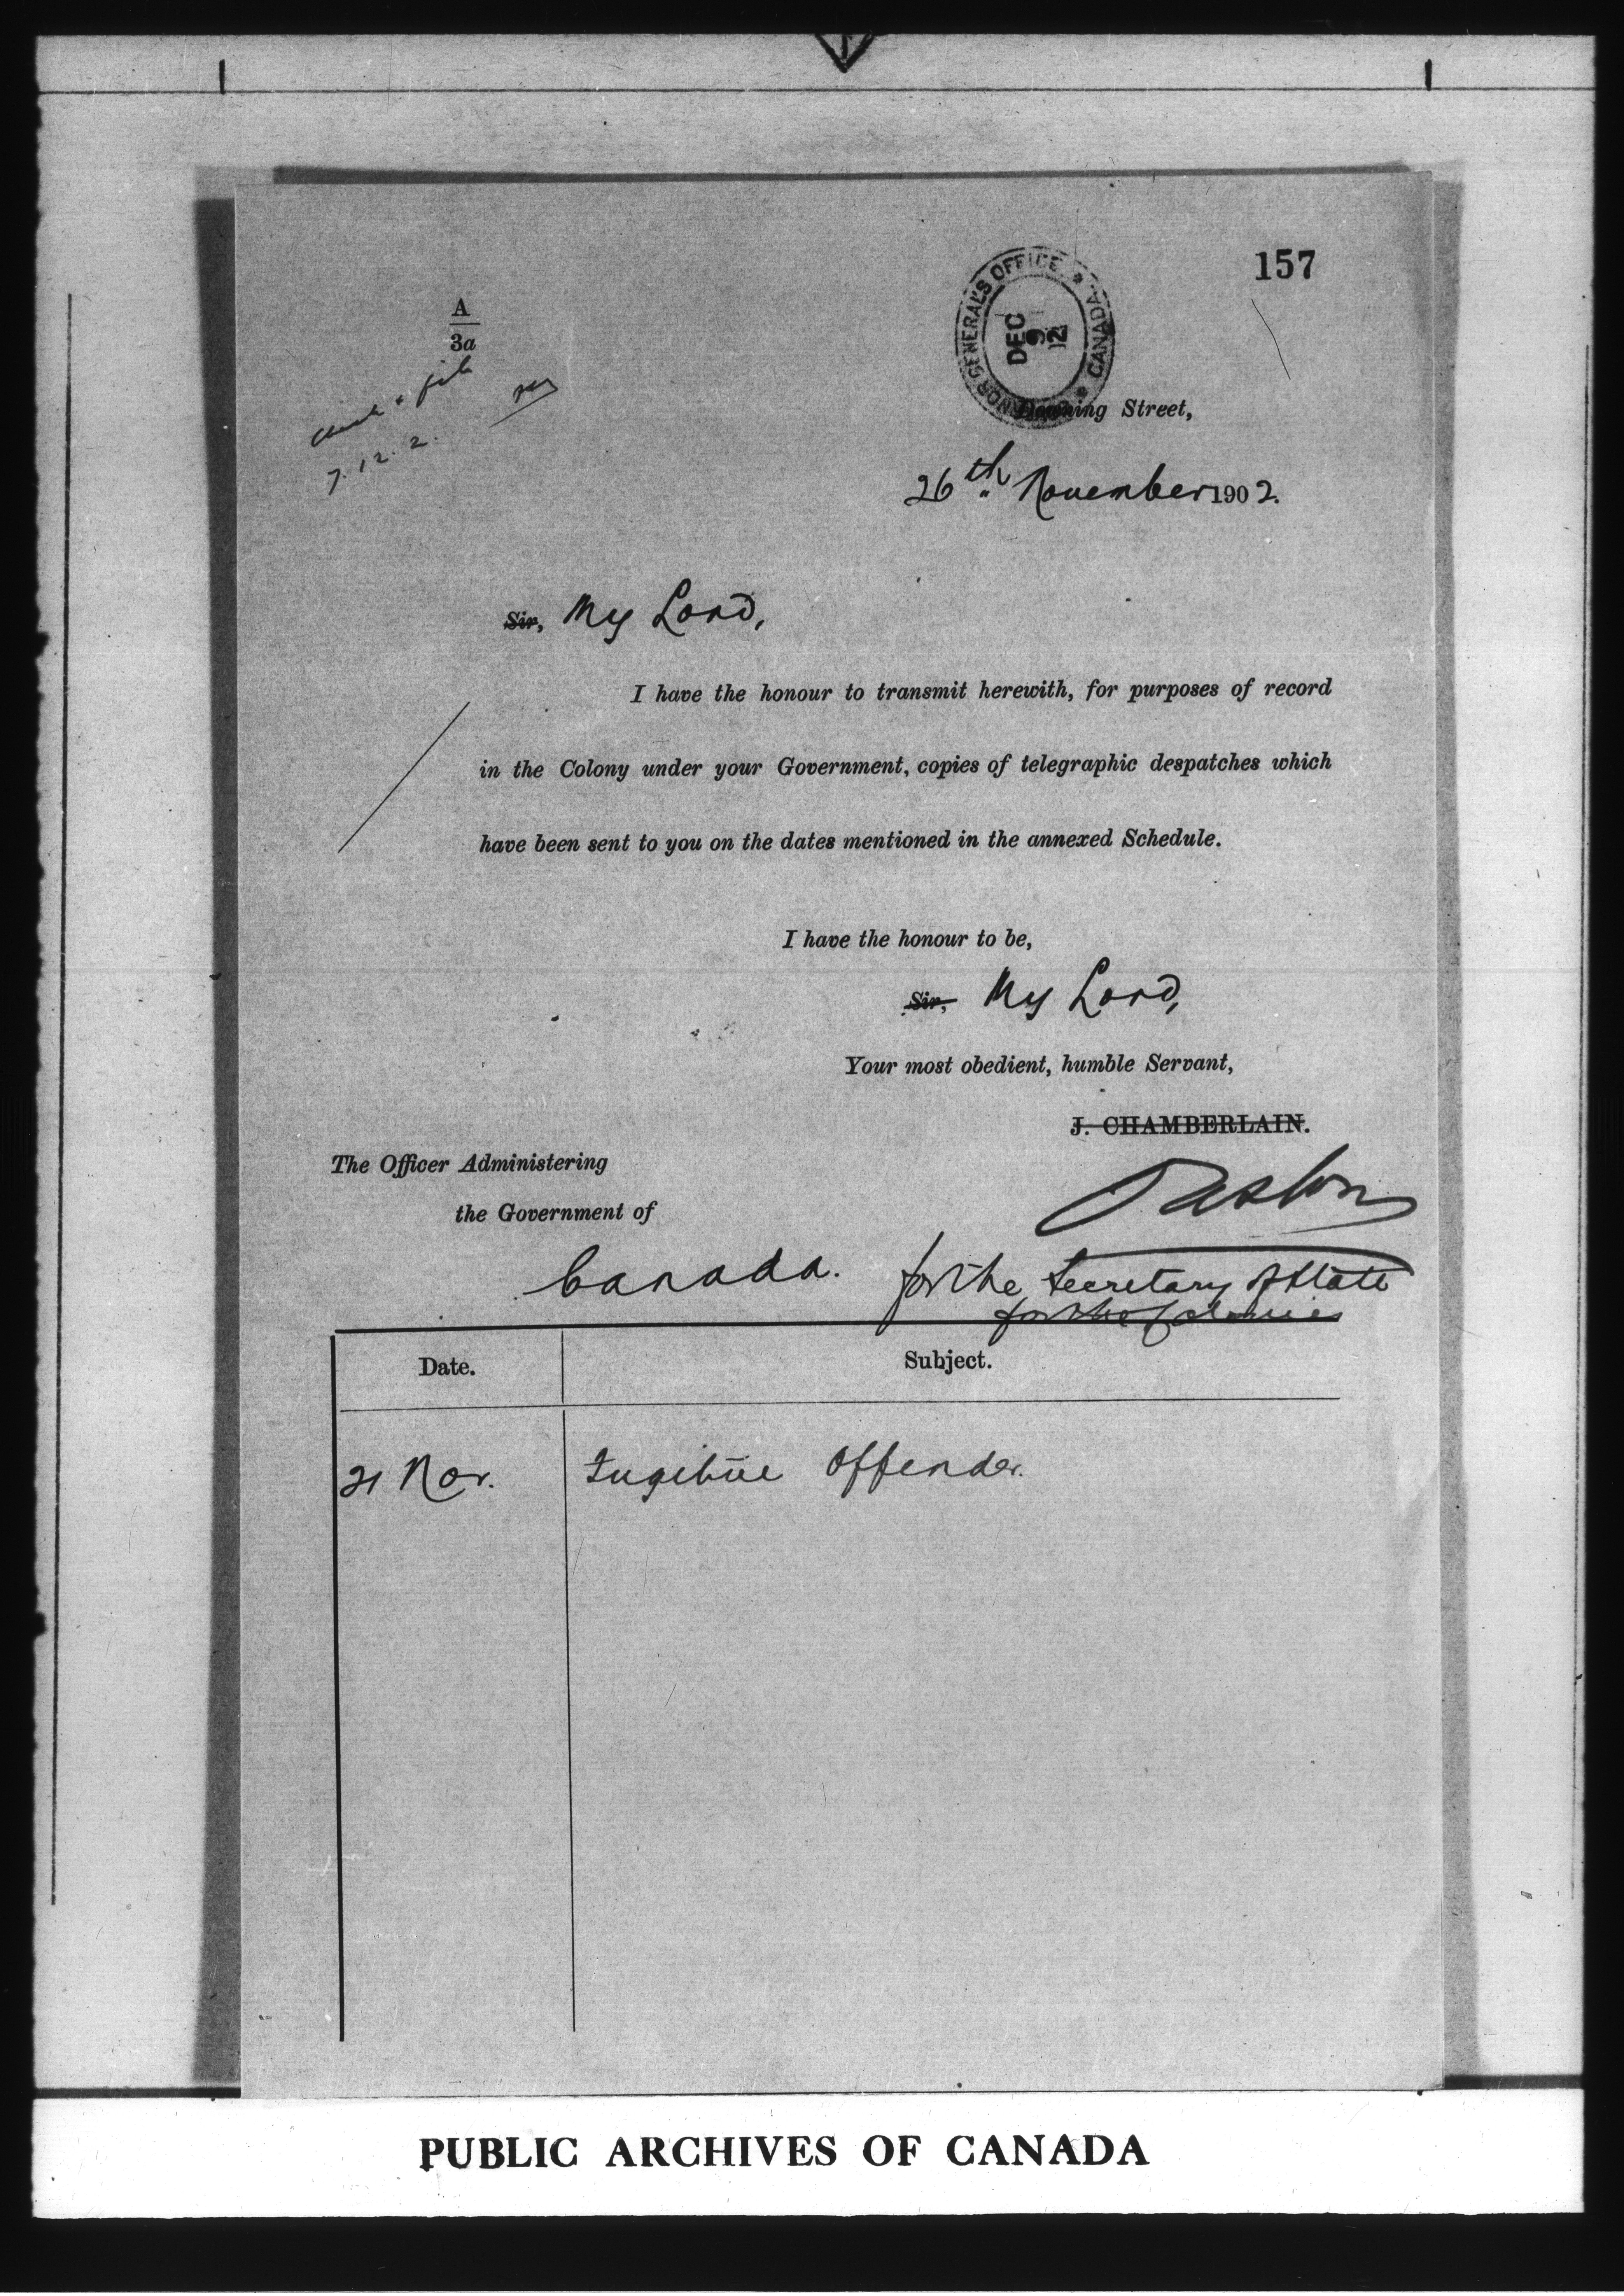 157
A
3a
file
7.12.2.
GOVERNOR GENERAL'S OFFICE * CANADA *
DEC
9
12
Downing Street,
26th November 1902.
Sir, My Lord,
I have the honour to transmit herewith, for purposes of record
in the Colony under your Government, copies of telegraphic despatches which
have been sent to you on the dates mentioned in the annexed Schedule.
I have the honour to be,
Sir, My Lord,
Your most obedient, humble Servant,
J. CHAMBERLAIN.
The Officer Administering
the Government of
Canada.
for the Secretary of State
for the Colonies
Date. Subject.
21 Nov. Fugitive Offender.
PUBLIC ARCHIVES OF CANADA